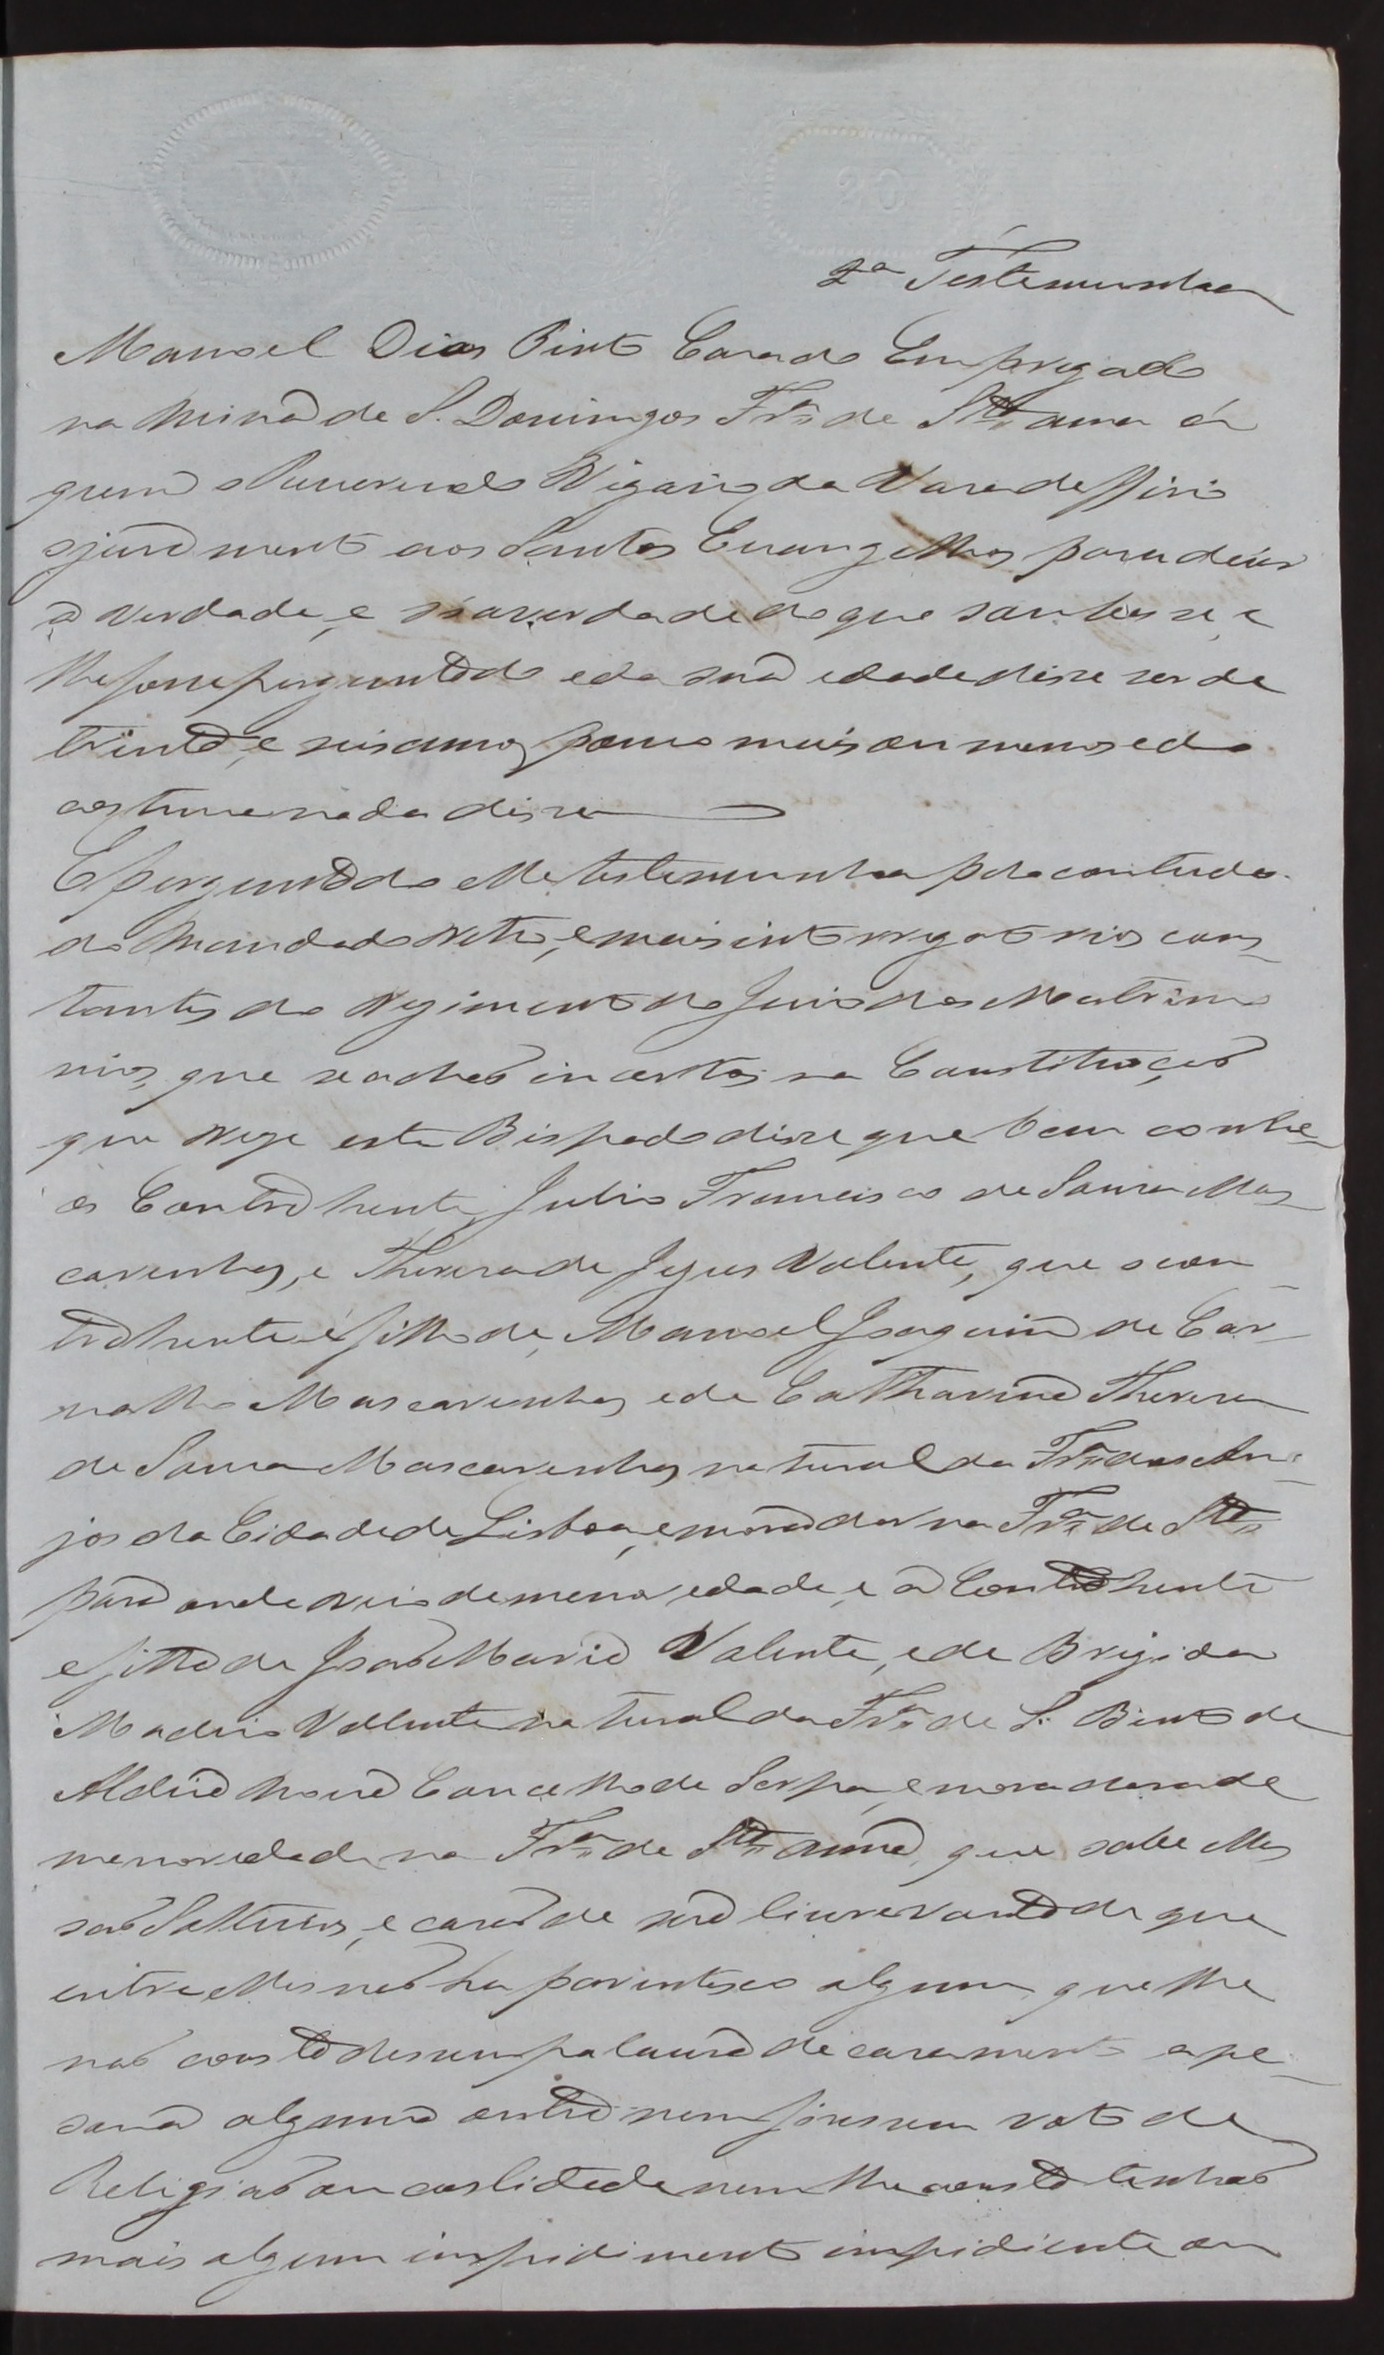 2ª Testemunha
Manoel Dias Pinto Casado Empregado
na Mina de S. Domingos Frª de Stª anna á
quem o Reverendo Vigario da Vara deffirio
o juramento aos Santos Evangelhos para dizer
a verdade, e só a verdade do que soubesse, e
lhe fosse perguntado e da sua edade disse ser de
trinta, e seis annos pouco mais ou menos e do
costume nada disse
E perguntado elle testemunha pelo contiudo
do Mandado retro, e mais interrogatorios cons-
tantes do Regimento do Juiz dos Matrimo
nios, que se achaõ incertos na Constituiçaõ
que rege este Bispado disse que bem conhe-
os Contrahentes Julio Francisco de Souza Mas-
carenhas, e Thereza de Jezus Valente, que o con-
trahente é filho de, Manoel Joaquim de Car-
valho Mascarenhas e de Catharina Thereza
de Souza Mascarenhas natural da Frª dos An-
jos da Cidade de Lisboa, e morador na Frª de Stª
para onde veio de menor edade, e a Contrahente
e filha de Joaõ Maria Valente, e de Brigida
Valente natural da Frª de S. Bento de
Aldeia Nova Concelho de Serpa, e moradora de
menor edade na Frª de Stª Anna, que sabe elles
saõ Solteiros, e casaõ de sua livre vontade que
entre elles naõ ha parentesco algum que lhe
naõ consta dessem palavra de casamento a pe-
soua alguma outra nem fizessem voto de
Religiaõ ou castidade nem lhe consta tenhaõ
mais algum impidimento impidiente ou